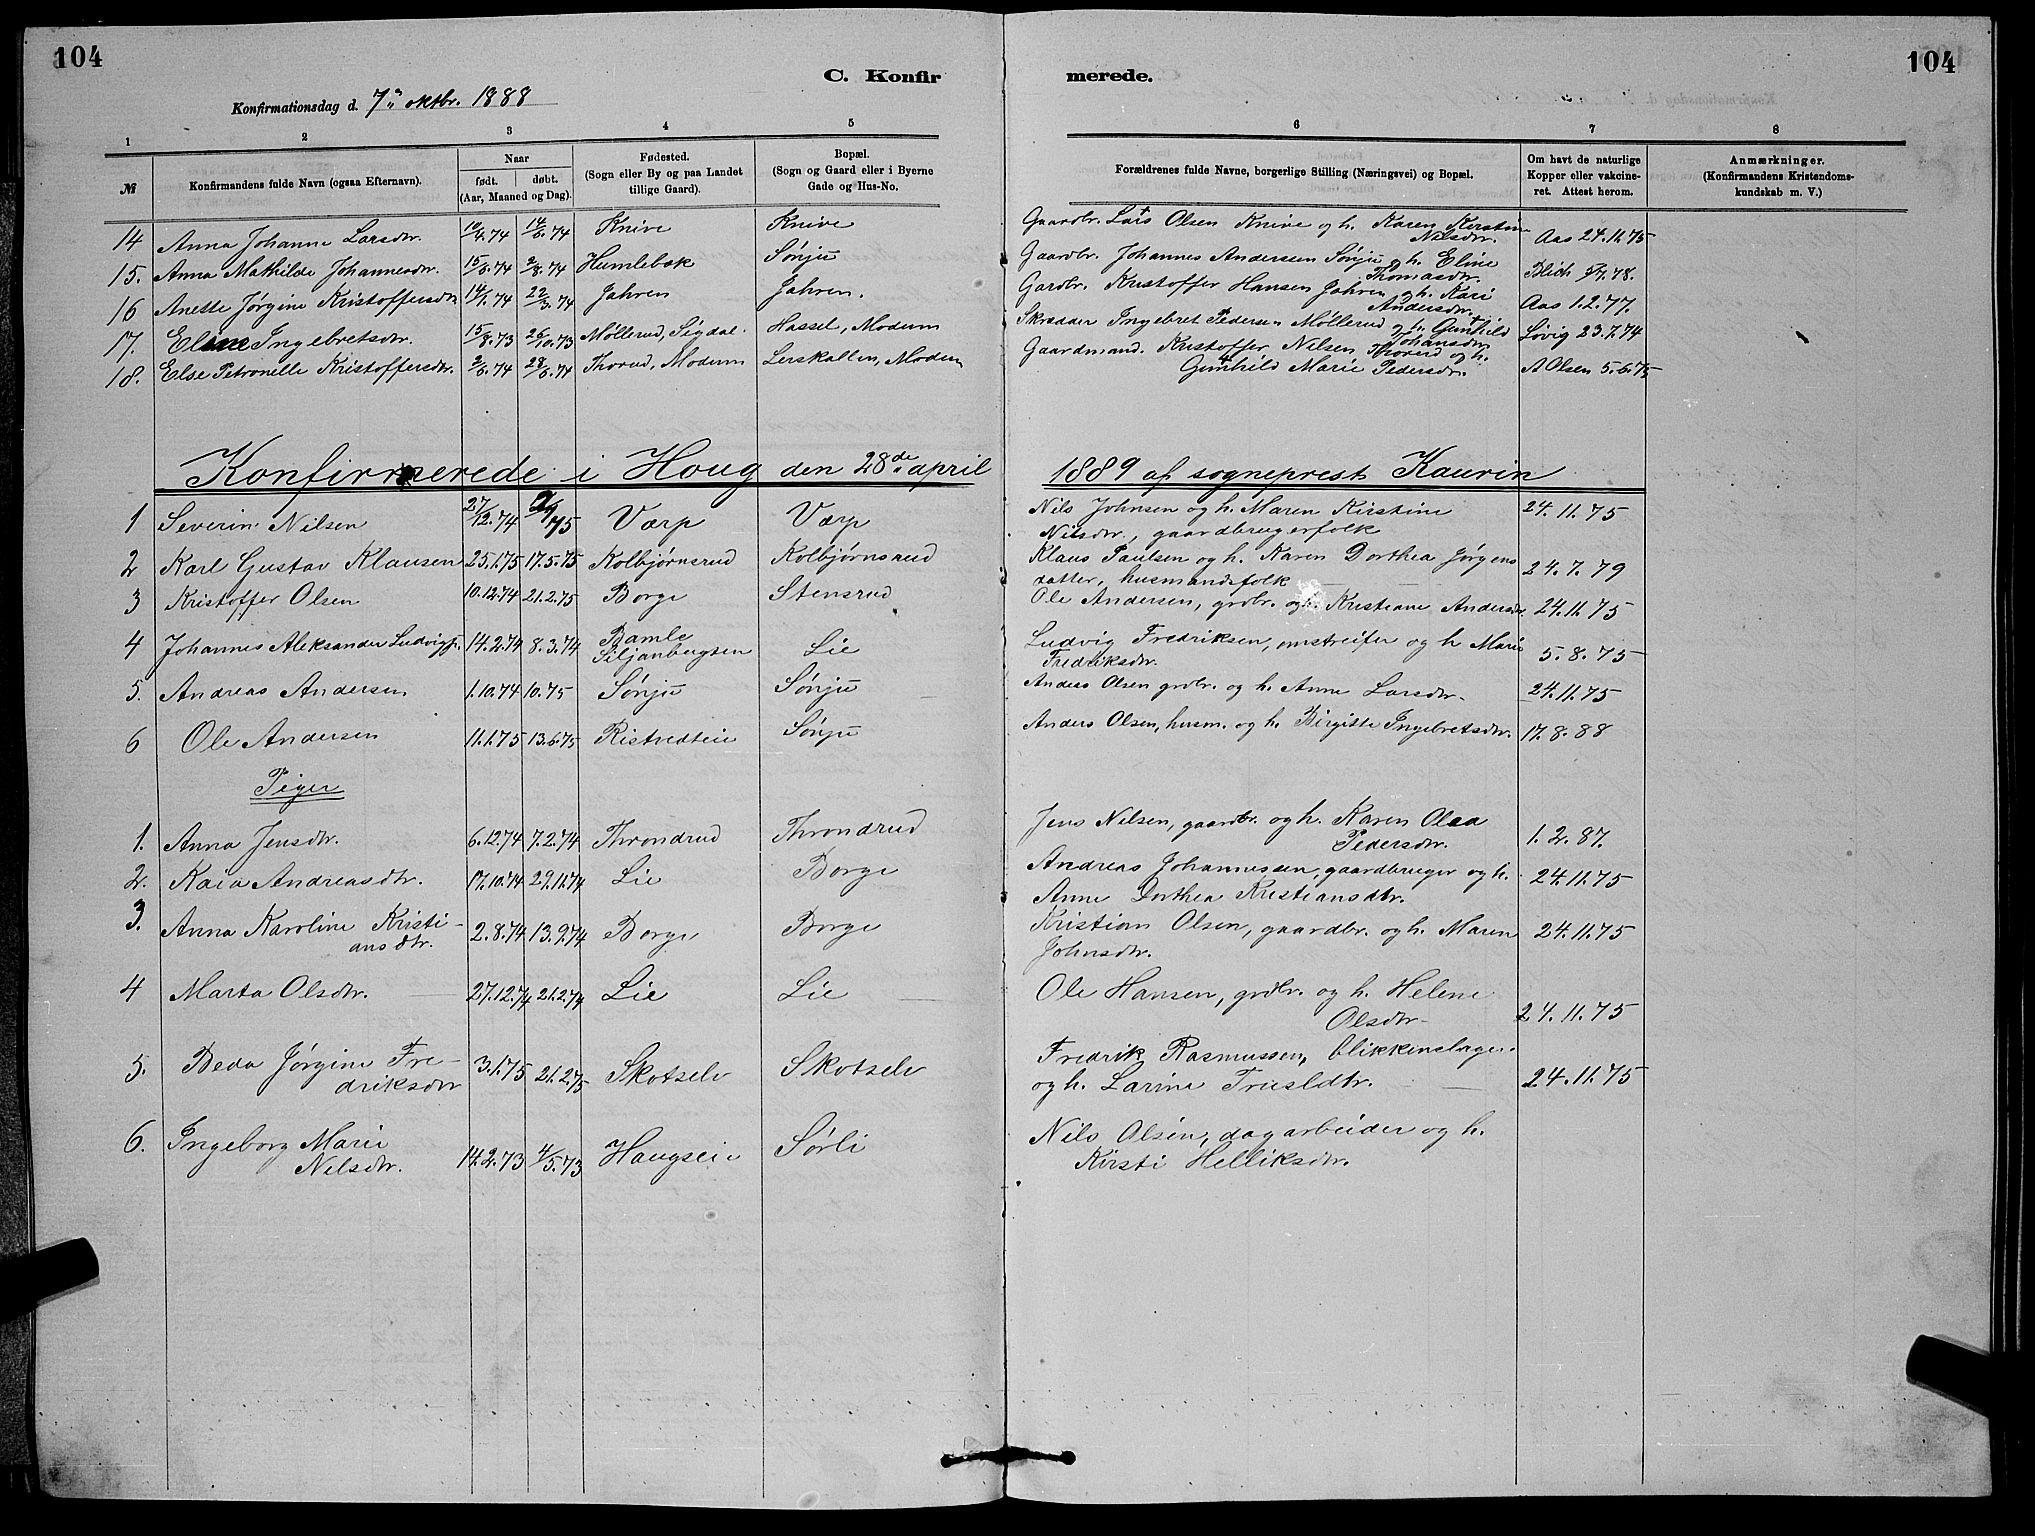 104
C. Konfirmerede.
104
Konfirmationsdag d. 7de oktbr. 1888
1 2 3 4 5 6 7 8
№
Konfirmandens fulde Navn (ogsaa Efternavn).
Naar
født. døbt.
(Aar, Maaned og Dag).
Fødested.
(Sogn eller By og paa Landet
tillige Gaard).
Bopæl.
(Sogn og Gaard eller i Byerne
Gade og Hus-No.
Forældrenes fulde Navne, borgerlige Stilling (Næringsvei) og Bopæl.
Om havt de naturlige
Kopper eller vakcine-
ret. Attest herom.
Anmærkninger.
(Konfirmandens Kristendoms-
kundskab m. V.)
14 Anna Johanne Larsdtr. 10/4.74 14/6.74 Knive Knive Gaardbr. Lars Olsen Knive og h. Karen Kirstine Nilsdtr. Aas 24.11.75
15. Anna Mathilde Johannesdtr. 15/6.74 2/8.74 Humlebæk Sønju Gaardbr. Johannes Andersen Sønju og h. Eline Thomasdtr. Blich 78.
16 Anette Jørgine Kristoffersdtr. 14/1.74 22/3.74 Jahren Jahren. Gardbr. Kristoffer Hansen Jahren og h. Kari Andersdtr. Aas 1.2.77.
17. Eline Ingebretsdtr. 15/8.73 26/10.73 Møllerud, Sigdal. Hassel, Modum Skrædder Ingebret Pedersen Møllerud og h. Gunhild Johansdtr. Løvig 23.7.74
18. Else Petronelle Kristoffersdtr. 2/6.74 28/6.74 Thorud, Modum Lerskallen, Modum Gaardmand. Kristoffer Nilsen Thorud og h. Gunhild Marie Pedersdtr. A Olsen 5.6.75
Konfirmerede i Houg den 28de april 1889 af sogneprest Kaurin
1 Severin Nilsen 27/12.74 75 Værp Værp Nils Johnsen og h. Maren Kirstine Nilsdtr., gaardbrugerfolk 24.11.75
2 Karl Gustav Klausen 25.1.75 17.5.75 Kolbjørnsrud Kolbjørnsrud Klaus Paulsen og h. Karen Dorthea Jørgensdatter, husmandsfolk 24.7.79
3 Kristoffer Olsen 10.12.74 21.2.75 Borge Stensrud Ole Andersen, grdbr. og h. Kristiane Andersdtr. 24.11.75
4 Johannes Aleksander Ludvigs. 14.2.74 8.3.74 Bamle Siljanbergsen Lie Ludvig Fredriksen, omstreifer og h Marie Fredriksdtr. 5.8.75
5. Andreas Andersen 1.10.74 10.75 Sønju Sønju Anders Olsen grdbr. og h. Anne Larsdtr. 24.11.75
6 Ole Andersen 11.1.75 13.6.75 Ristvedteie Sønju Anders Olsen, husm. og h. Birgitte Ingebretsdtr. 17.8.88
Piger
1. Anna Jensdtr. 6.12.74 7.2.74 Throndrud Throndrud Jens Nilsen, gaardbr. og h. Karen Olea Pedersdtr. 1.2.87.
2. Kaia Andreasdtr. 17.10.74 29.11.74 Lie Borge Andreas Johannessen, gaardbruger og h. Anne Dorthea Kristiansdtr. 24.11.75
3. Anna Karoline Kristiansdtr. 2.8.74 13.9.74 Borge Borge Kristian Olsen, gaardbr. og h. Maren Johnsdtr. 24.11.75
4 Marta Olsdtr. 27.12.74 21.2.74 Lie Lie Ole Hansen, grdbr. og h. Helene Olsdtr 24.11.75
5. Beda Jørgine Fredriksdtr 3.1.75 21.2.75 Skotselv Skotselv Fredrik Rasmussen, blikkenslager og h. Larine Truelsdtr. 24.11.75
6. Ingeborg Marie Nilsdtr. 14.2.73 4/5.73 Haugseie Sørli Nils Olsen, dagarbeider og h. Kirsti Helliksdtr.